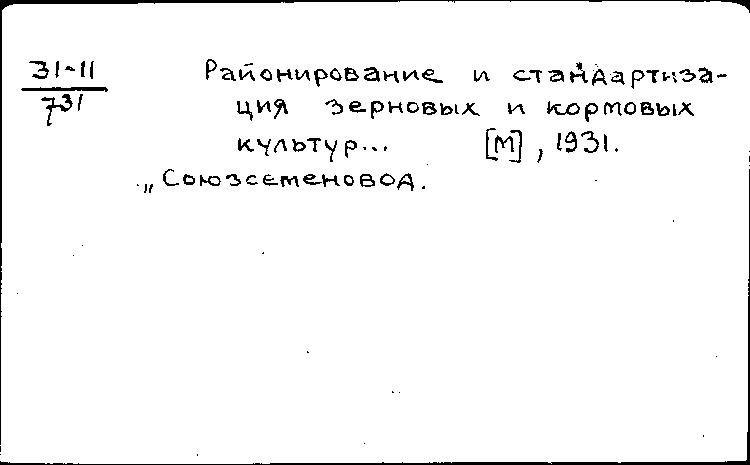 31-11
731
Районирование и стандартиза-
ция зерновых и кормовых
культур... [М], 1931.
„Союзсеменовод.